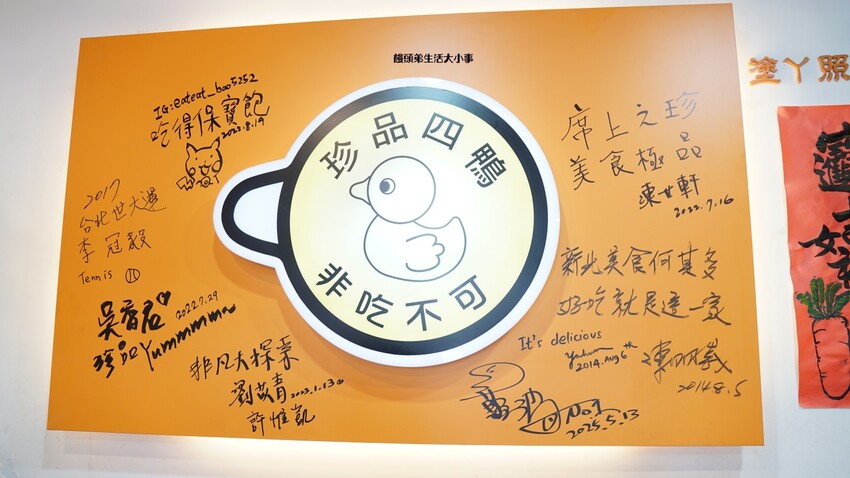 饅頭弟生活大小事
IG:eateat_boo5252
吃得保寶飽
2022.8.19
珍品四鴨
非吃不可
席上之珍
美食極品
陳世軒
2022.7.16
塗丫照
2017
台北世大運
李冠毅
Tennis
吳香君
2022.7.29
珍品Yummmmm~
非凡大探索
劉苡青
2023.1.13
許惟凱
新北美食何其多
好吃就是這一家
It's delicious
2014.Aug 6th
2014.8.5
No.1
2025.5.13